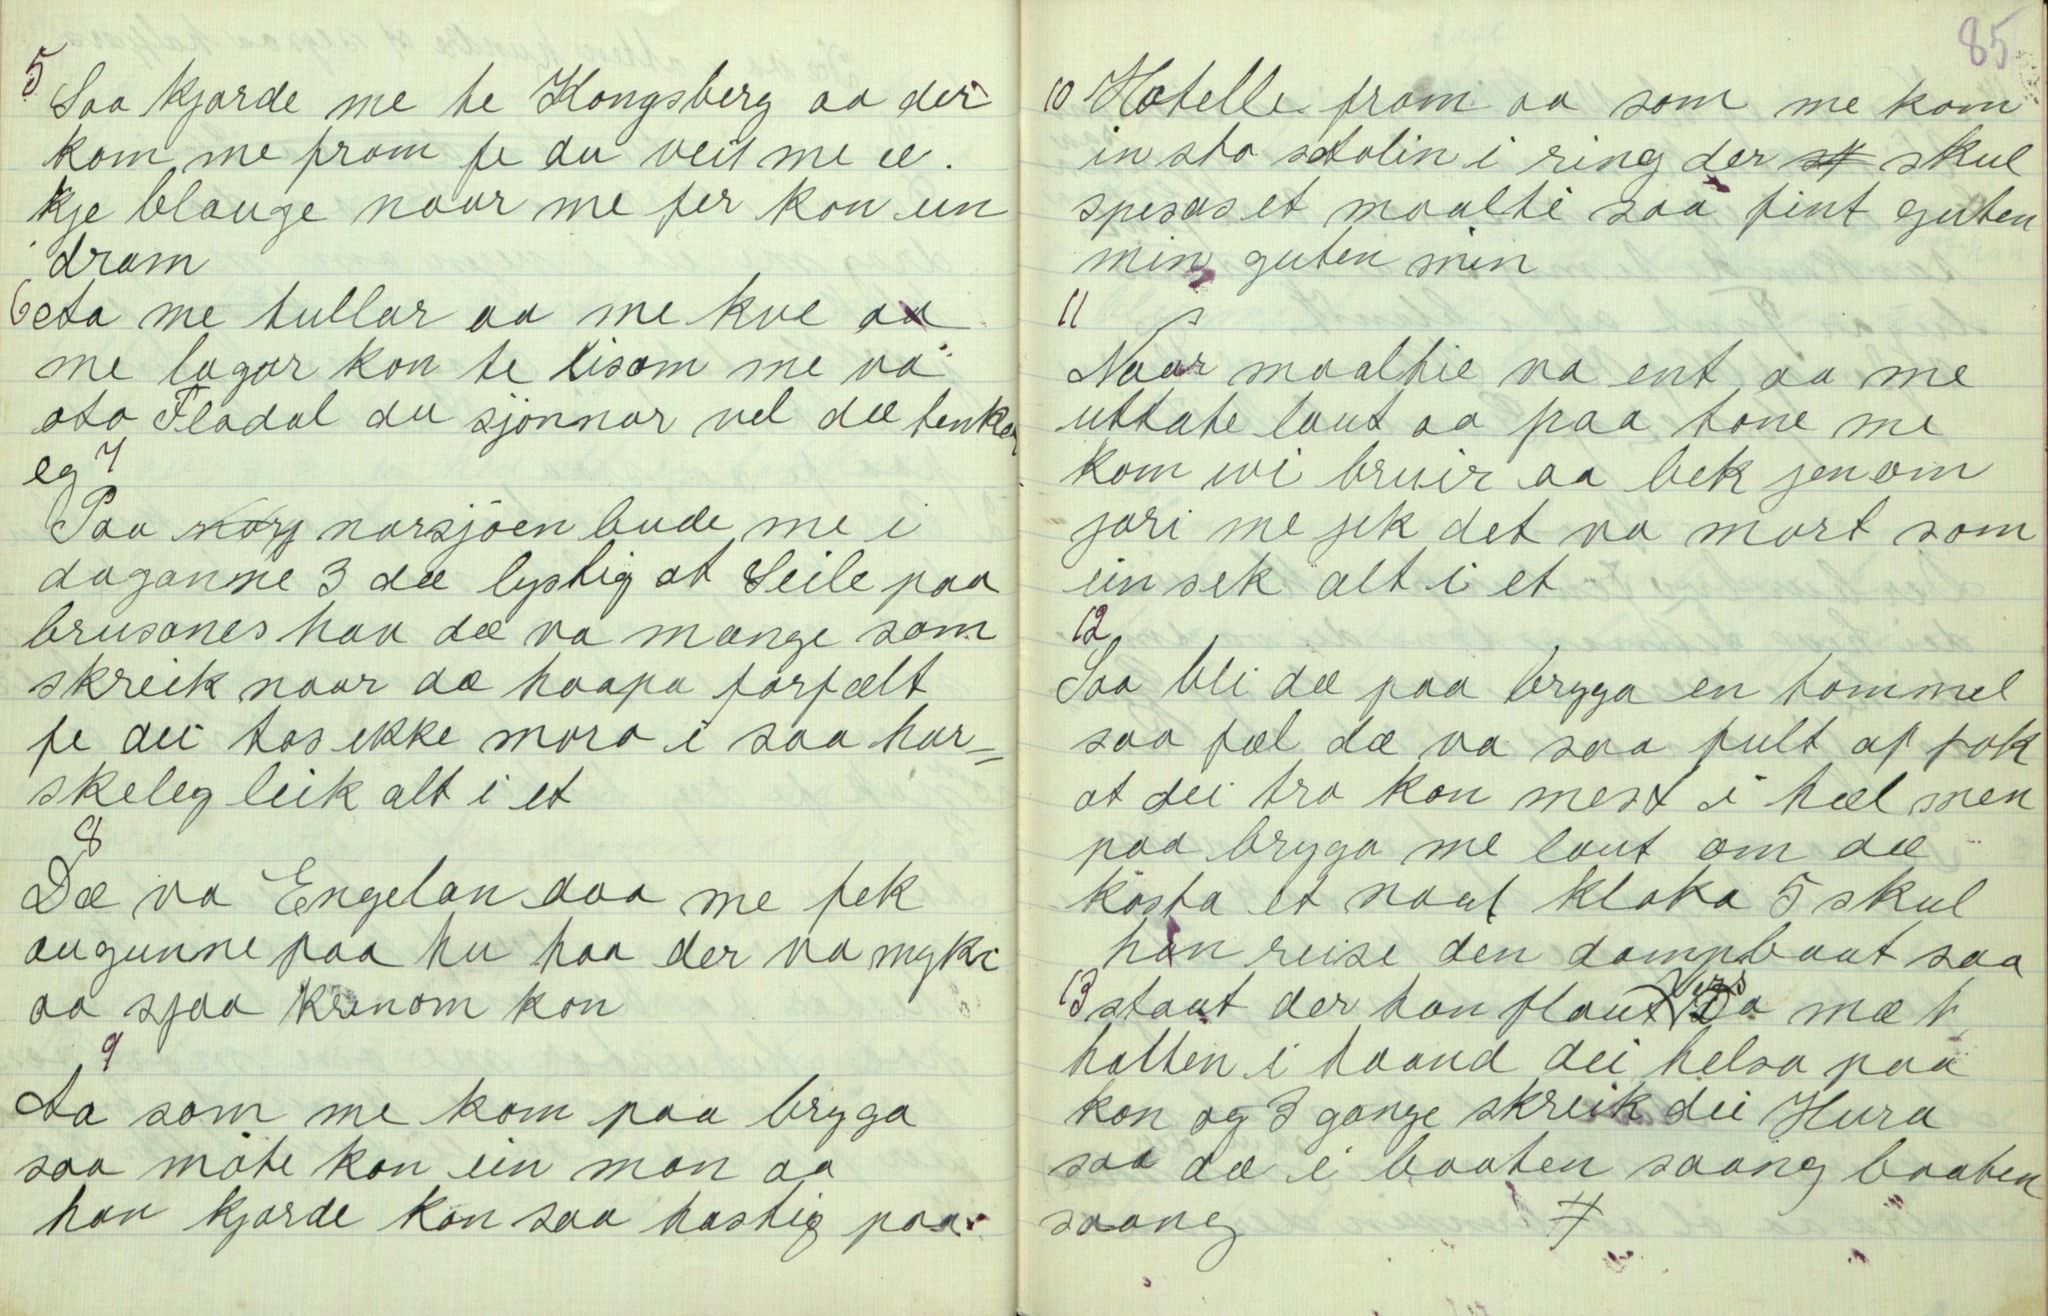 5
Saa kjorde me te Kongsberg aa der
kom me from fe du veit me æ
kje blauge naar me fer kon ein
dram
6 Aa me tullar aa me kve aa
me lagar kon te lisom me va
ota Fladal du sjønnar vel dæ tenker
eg 7
Paa norsjøen bude me i
daganne 3 dæ lystig at Seile paa
brusanes hav dæ va mange som
skreik naar dæ haapa forfælt
fe dei tos ikke moro i saa har=
skeleg leik alt i et
8
Dæ va Engelan daa me fek
augunne paa hu haa der va myki
aa sjaa krenom kon
9
Aa som me kom paa brygga
saa møte kon ein man aa
han kjorde kon saa hastig paa
85
10 Hotelle from aa som me kom
in sto stolin i ring der skul
spesas et maalti saa fint guten
min guten min
11
Naar maaltie va ent aa me
uttate laut aa paa tone me
kom ivi bruir aa bek jenom
jori me jek det va mort som
ein sek alt i et
12
Saa bli dæ paa brygga en tommel
saa fæl dæ va saa fult af fok
at dei tro kon mest i hæl men
paa brygga me laut om dæ
kosta et naut kloka 5 skul
han reise den dampbaat saa
13 staut der han flaut Vers Da mæ h
hatten i haand dei helsa paa
kon og 3 gange skreik dei Hura
saa dæ i baaten saang baaten
saang